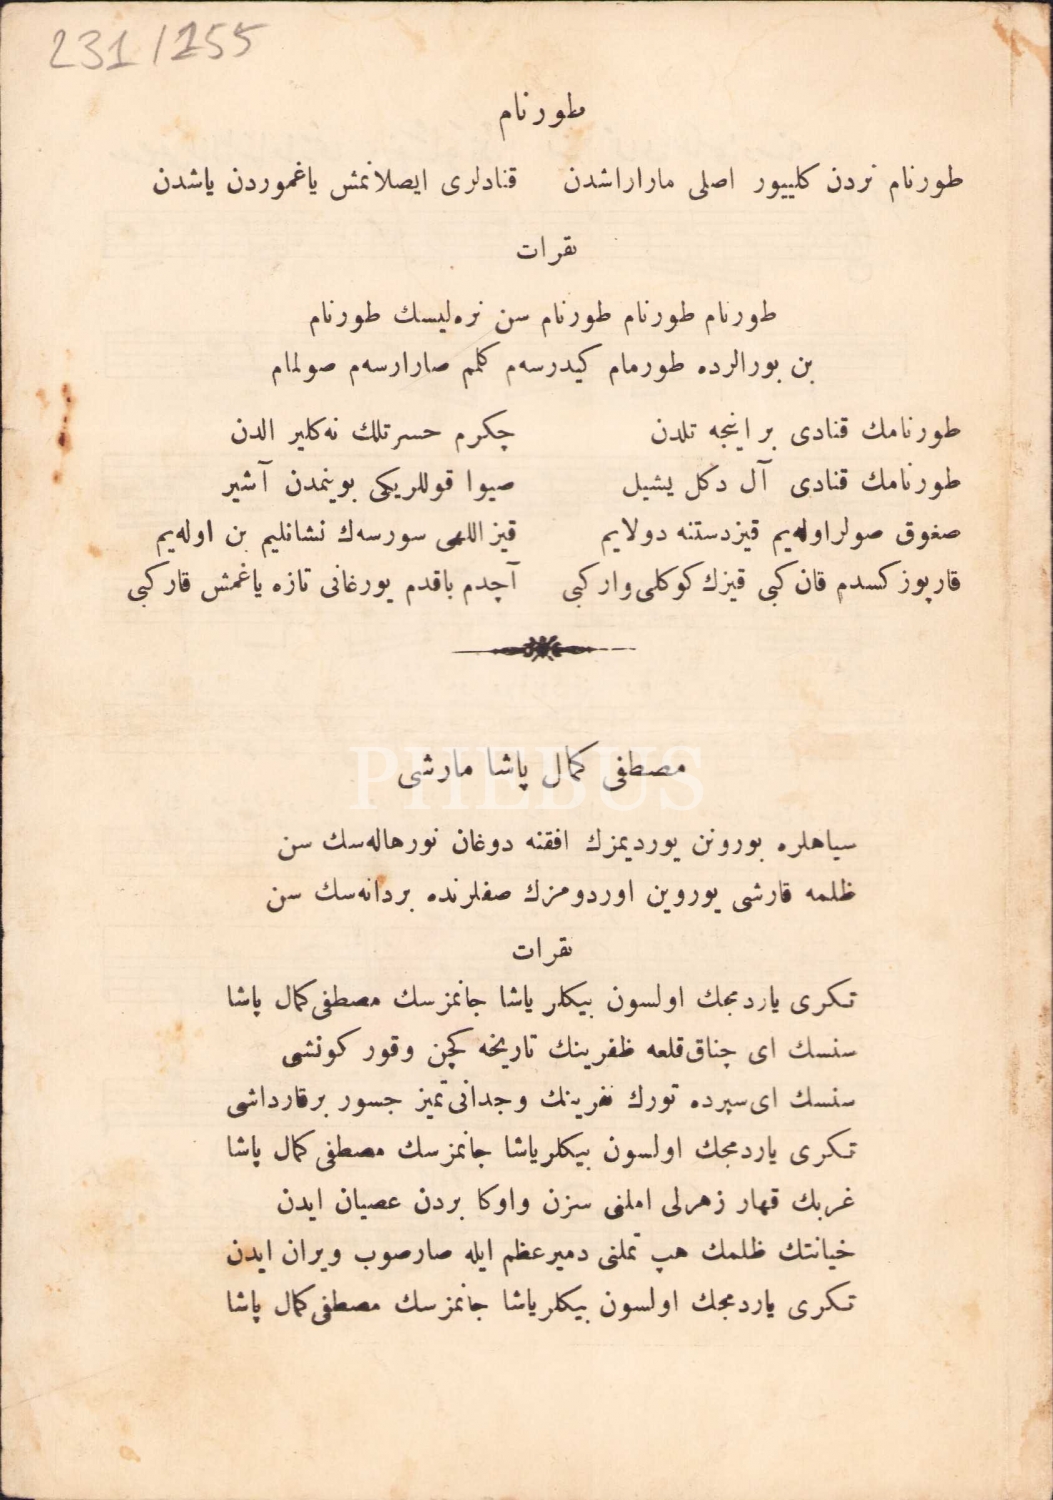 231/255
طورنام
طورنام نردن كلييور اصلى ماراراشدن قنادلرى ايصلانمش ياغموردن ياشدن
نقرات
طورنام طورنام طورنام سن نره‌ليسك طورنام
بن بورالرده طورمام كيدرسه‌م كلمم صارارسه‌م صولمام
طورنامك قنادى بر اينجه تلدن چكرم حسرتلك نه‌كلير الدن
طورنامك قنادى آل دكل يشيل صيوا قوللريكى بوينمدن آشير
صغوق صولر اوله‌يم قيزدستنه دولايم قيز اللهى سورسه‌ك نشانليم بن اوله‌يم
قارپوز كسدم قان كبى قيزك كوكلى وار كبى آچدم باقدم يورغانى تازه ياغمش قار كبى
مصطفى كمال پاشا مارشى
PHEBUS
سياهلره بورونن يورديمزك افقنه دوغان نور هاله‌سك سن
ظلمه قارشى يوروين اوردومزك صفلرنده بردانه‌سك سن
نقرات
تكرى ياردمجك اولسون بيكلر ياشا جانمزسك مصطفى كمال پاشا
سنسك اى چناق قلعه ظفرينك تاريخه كچن وقور كونشى
سنسك اى سپرده تورك نفرينك وجدانى تميز جسور برقارداشى
تكرى ياردمجك اولسون بيكلر ياشا جانمزسك مصطفى كمال پاشا
غربك قهار زهرلى املنى سزن واوكا بردن عصيان ايدن
خيانتك ظلمك هپ تملنى دميرعظم ايله صارصوب ويران ايدن
تكرى ياردمجك اولسون بيكلر ياشا جانمزسك مصطفى كمال پاشا